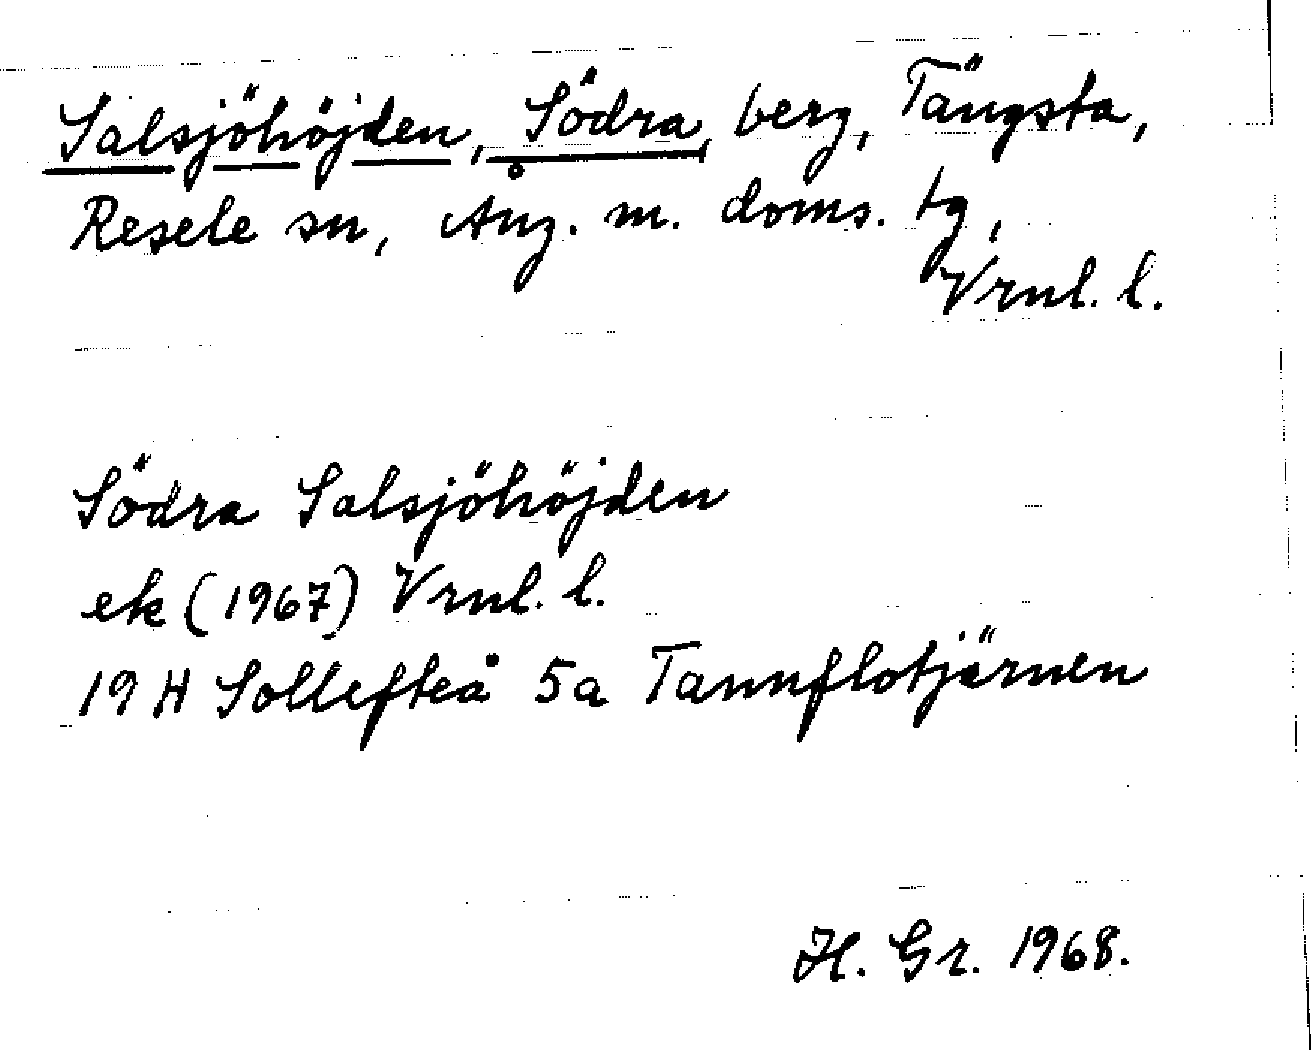 Salsjöhöjden, Södra, berg, Tängsta,
Resele sn, Ång. m. doms. tg,
Vrnl. l.
Södra Salsjöhöjden
ek (1967) Vrnl. l.
19 H Sollefteå 5a Tannflotjärnen
H. Gr. 1968.